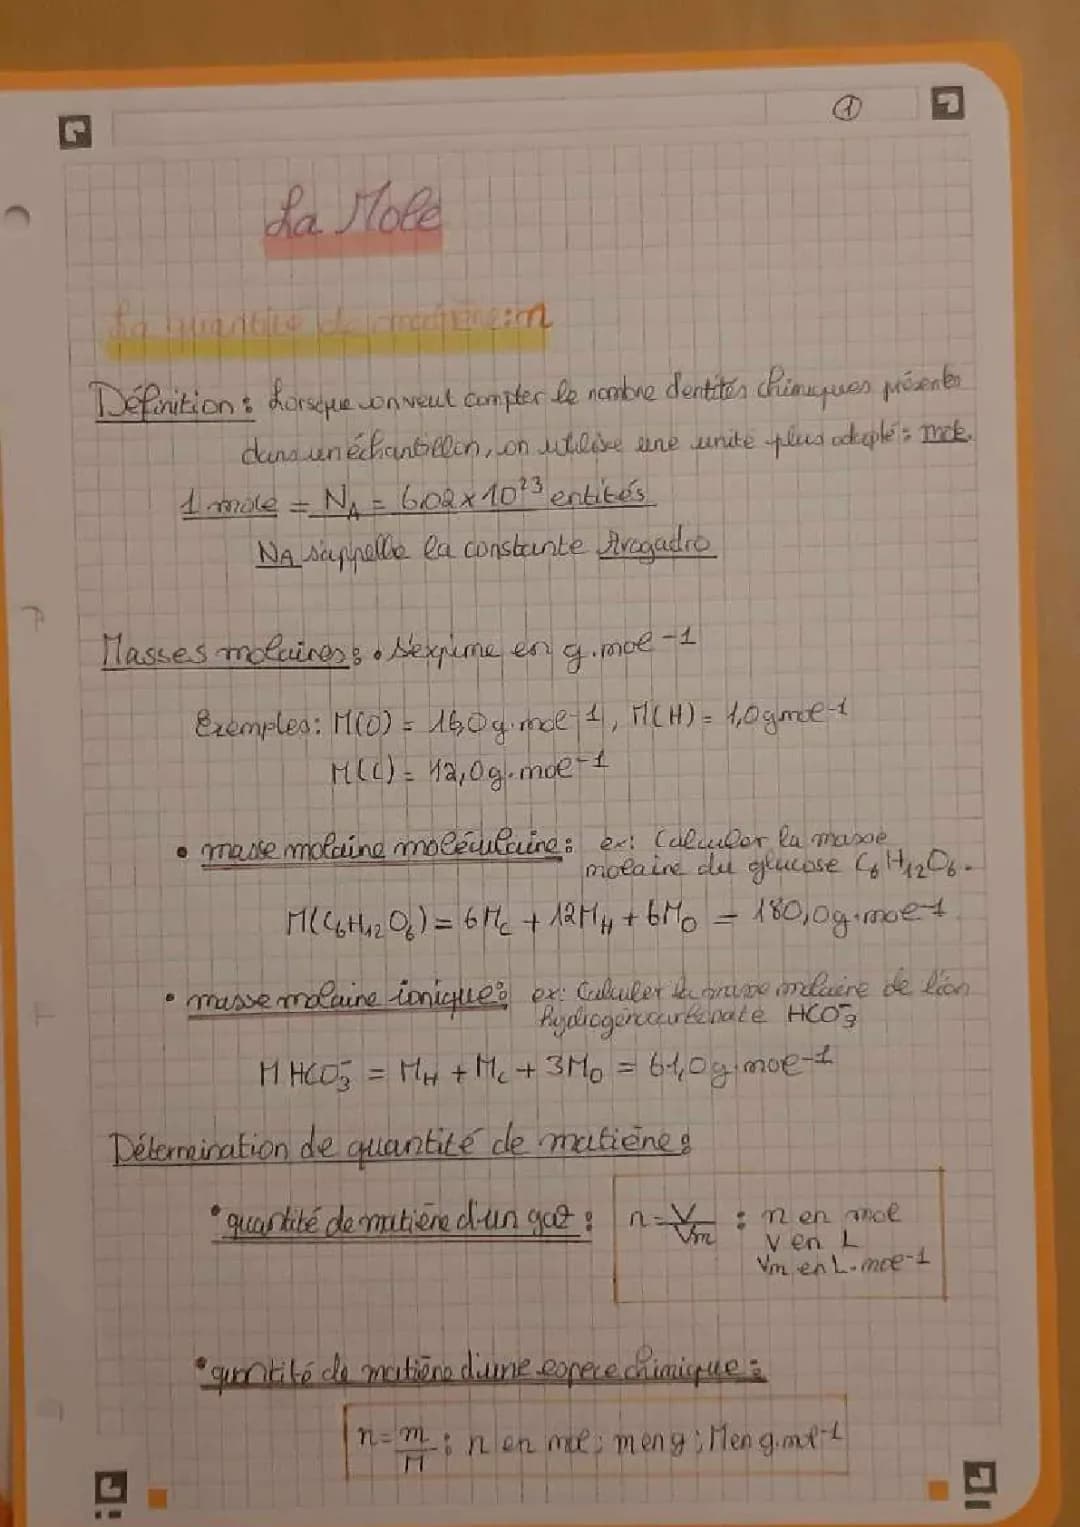 ①
La Mole
La quantité de matière : n
Définition : Lorsque l'on veut compter le nombre d'entités chimiques présentes
dans un échantillon, on utilise une unité plus adapté : mole.
1 mole = N_A = 6,02 × 10²³ entités
N_A s'appelle la constante Avogadro
Masses molaires : • S'exprime en g.mol-1
Exemples : M(O) = 16,0g.mol-1, M(H) = 1,0gmol-1
M(C) = 12,0g.mol-1
• masse molaire moléculaire : ex : Calculer la masse
molaire du glucose C₆H₁₂O₆.
M(C₆H₁₂O₆) = 6M_C + 12M_H + 6M_O = 180,0g.mol-1
• masse molaire ionique : ex : Calculer la masse molaire de l'ion
hydrogénocarbonate HCO₃⁻
M HCO₃⁻ = M_H + M_C + 3M_O = 61,0g.mol-1
Détermination de quantité de matière :
• quantité de matière d'un gaz : n = V/Vm : n en mol
V en L
Vm en L.mol-1
• quantité de matière d'une espece chimique :
n = m/M : n en mol ; m en g ; M en g.mol-1